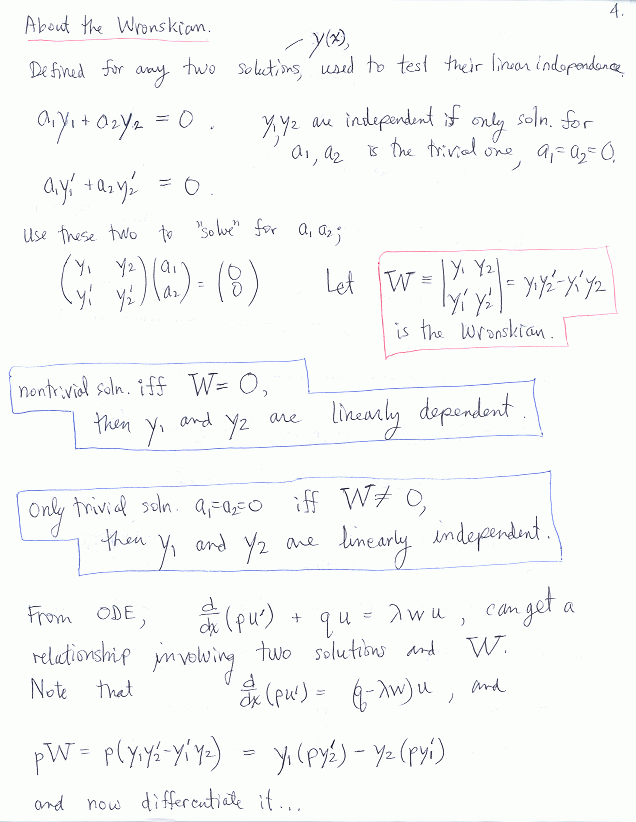 4.
About the Wronskian.
y(x),
Defined for any two solutions, used to test their linear independence.
a₁y₁ + a₂y₂ = 0 . y₁, y₂ are independent if only soln. for
a₁, a₂ is the trivial one, a₁ = a₂ = 0.
a₁y₁' + a₂y₂' = 0 .
Use these two to "solve" for a₁ a₂;
(y₁ y₂) (a₁) = (0)
(y₁' y₂') (a₂) (0)
Let W ≡ |y₁ y₂| = y₁y₂' - y₁'y₂
|y₁' y₂'|
is the Wronskian.
nontrivial soln. iff W = 0,
then y₁ and y₂ are linearly dependent.
only trivial soln. a₁=a₂=0 iff W ≠ 0,
then y₁ and y₂ are linearly independent.
From ODE, d/dx (pu') + qu = λwu , can get a
relationship involving two solutions and W.
Note that d/dx (pu') = (q-λw)u , and
pW = p(y₁y₂' - y₁'y₂) = y₁(py₂') - y₂(py₁')
and now differentiate it...